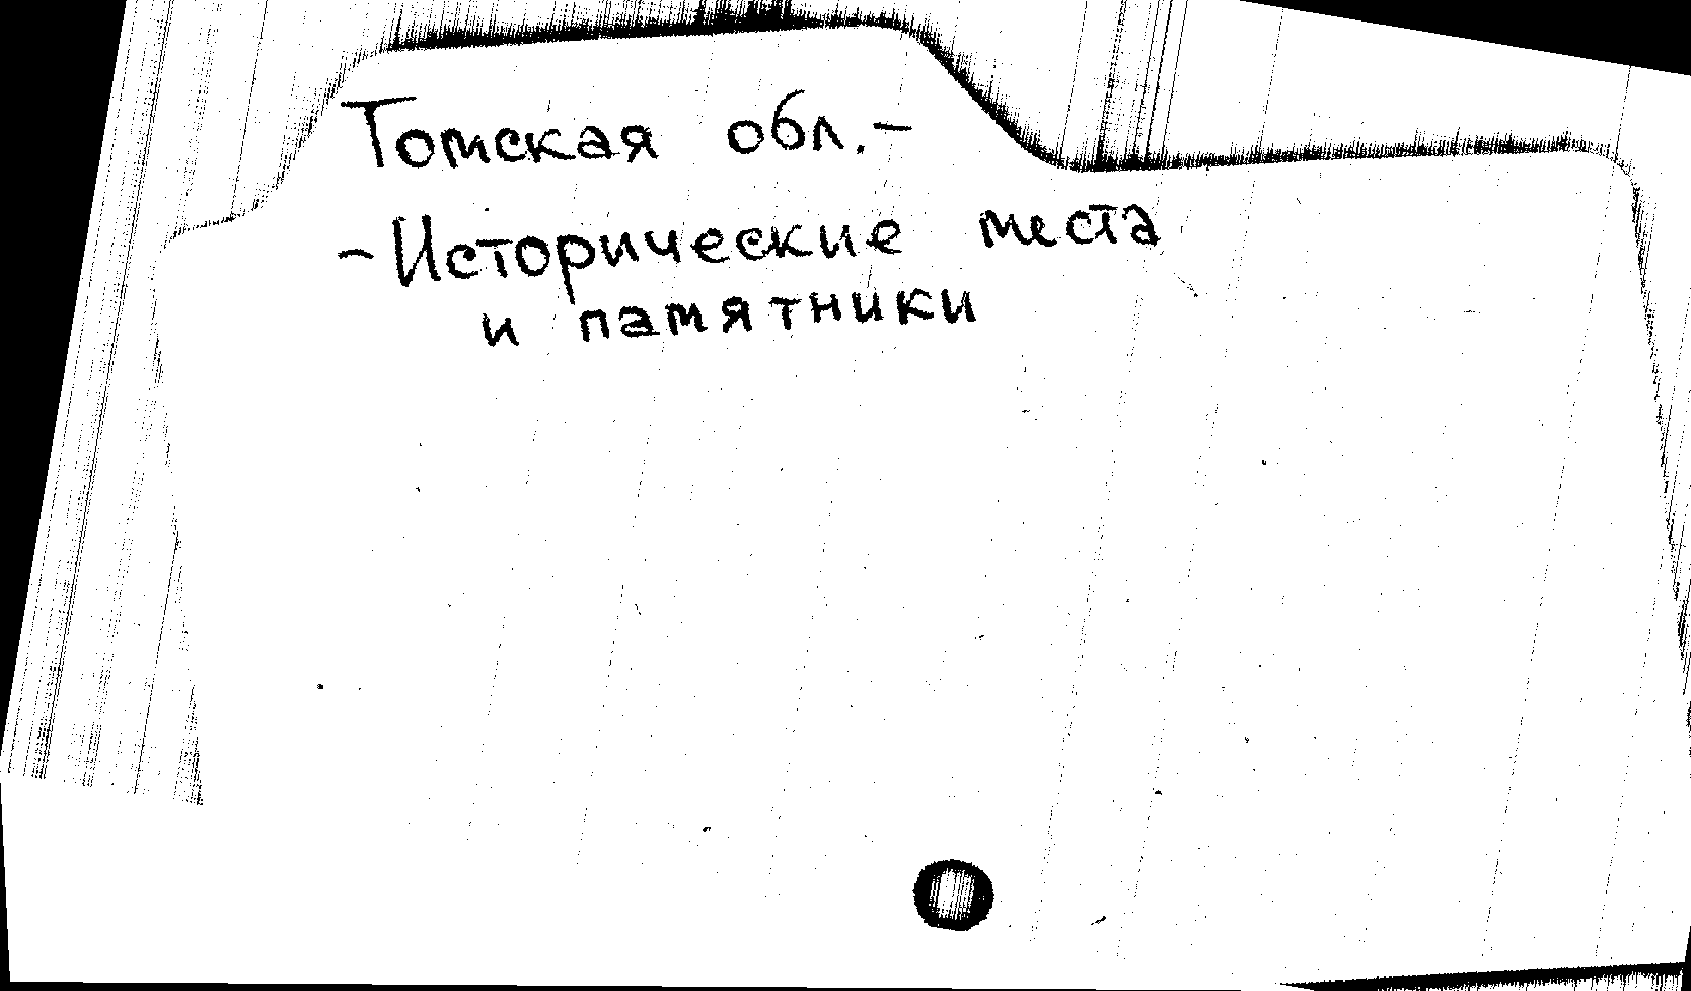 Томская обл.-
-Исторические места
и памятники